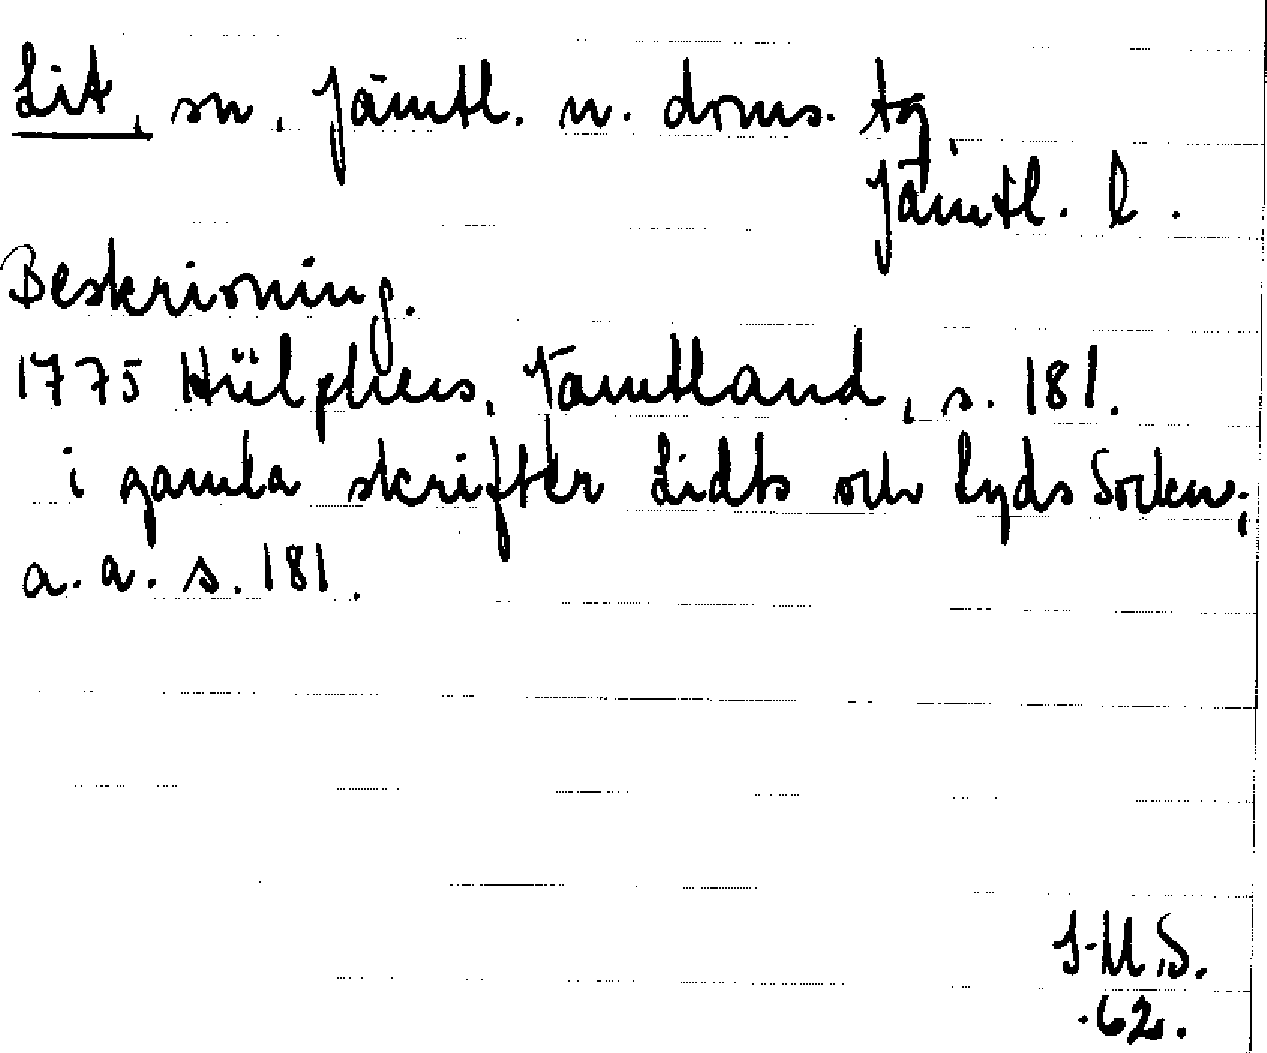 Lit, sn, Jämtl. n. doms. tg
Jämtl. l.
Beskrivning.
1775 Hülphers, Jämtland, s. 181.
i gamla skrifter Lidts och Lyds Socken;
a. a. s. 181.
J.M.S.
.62.